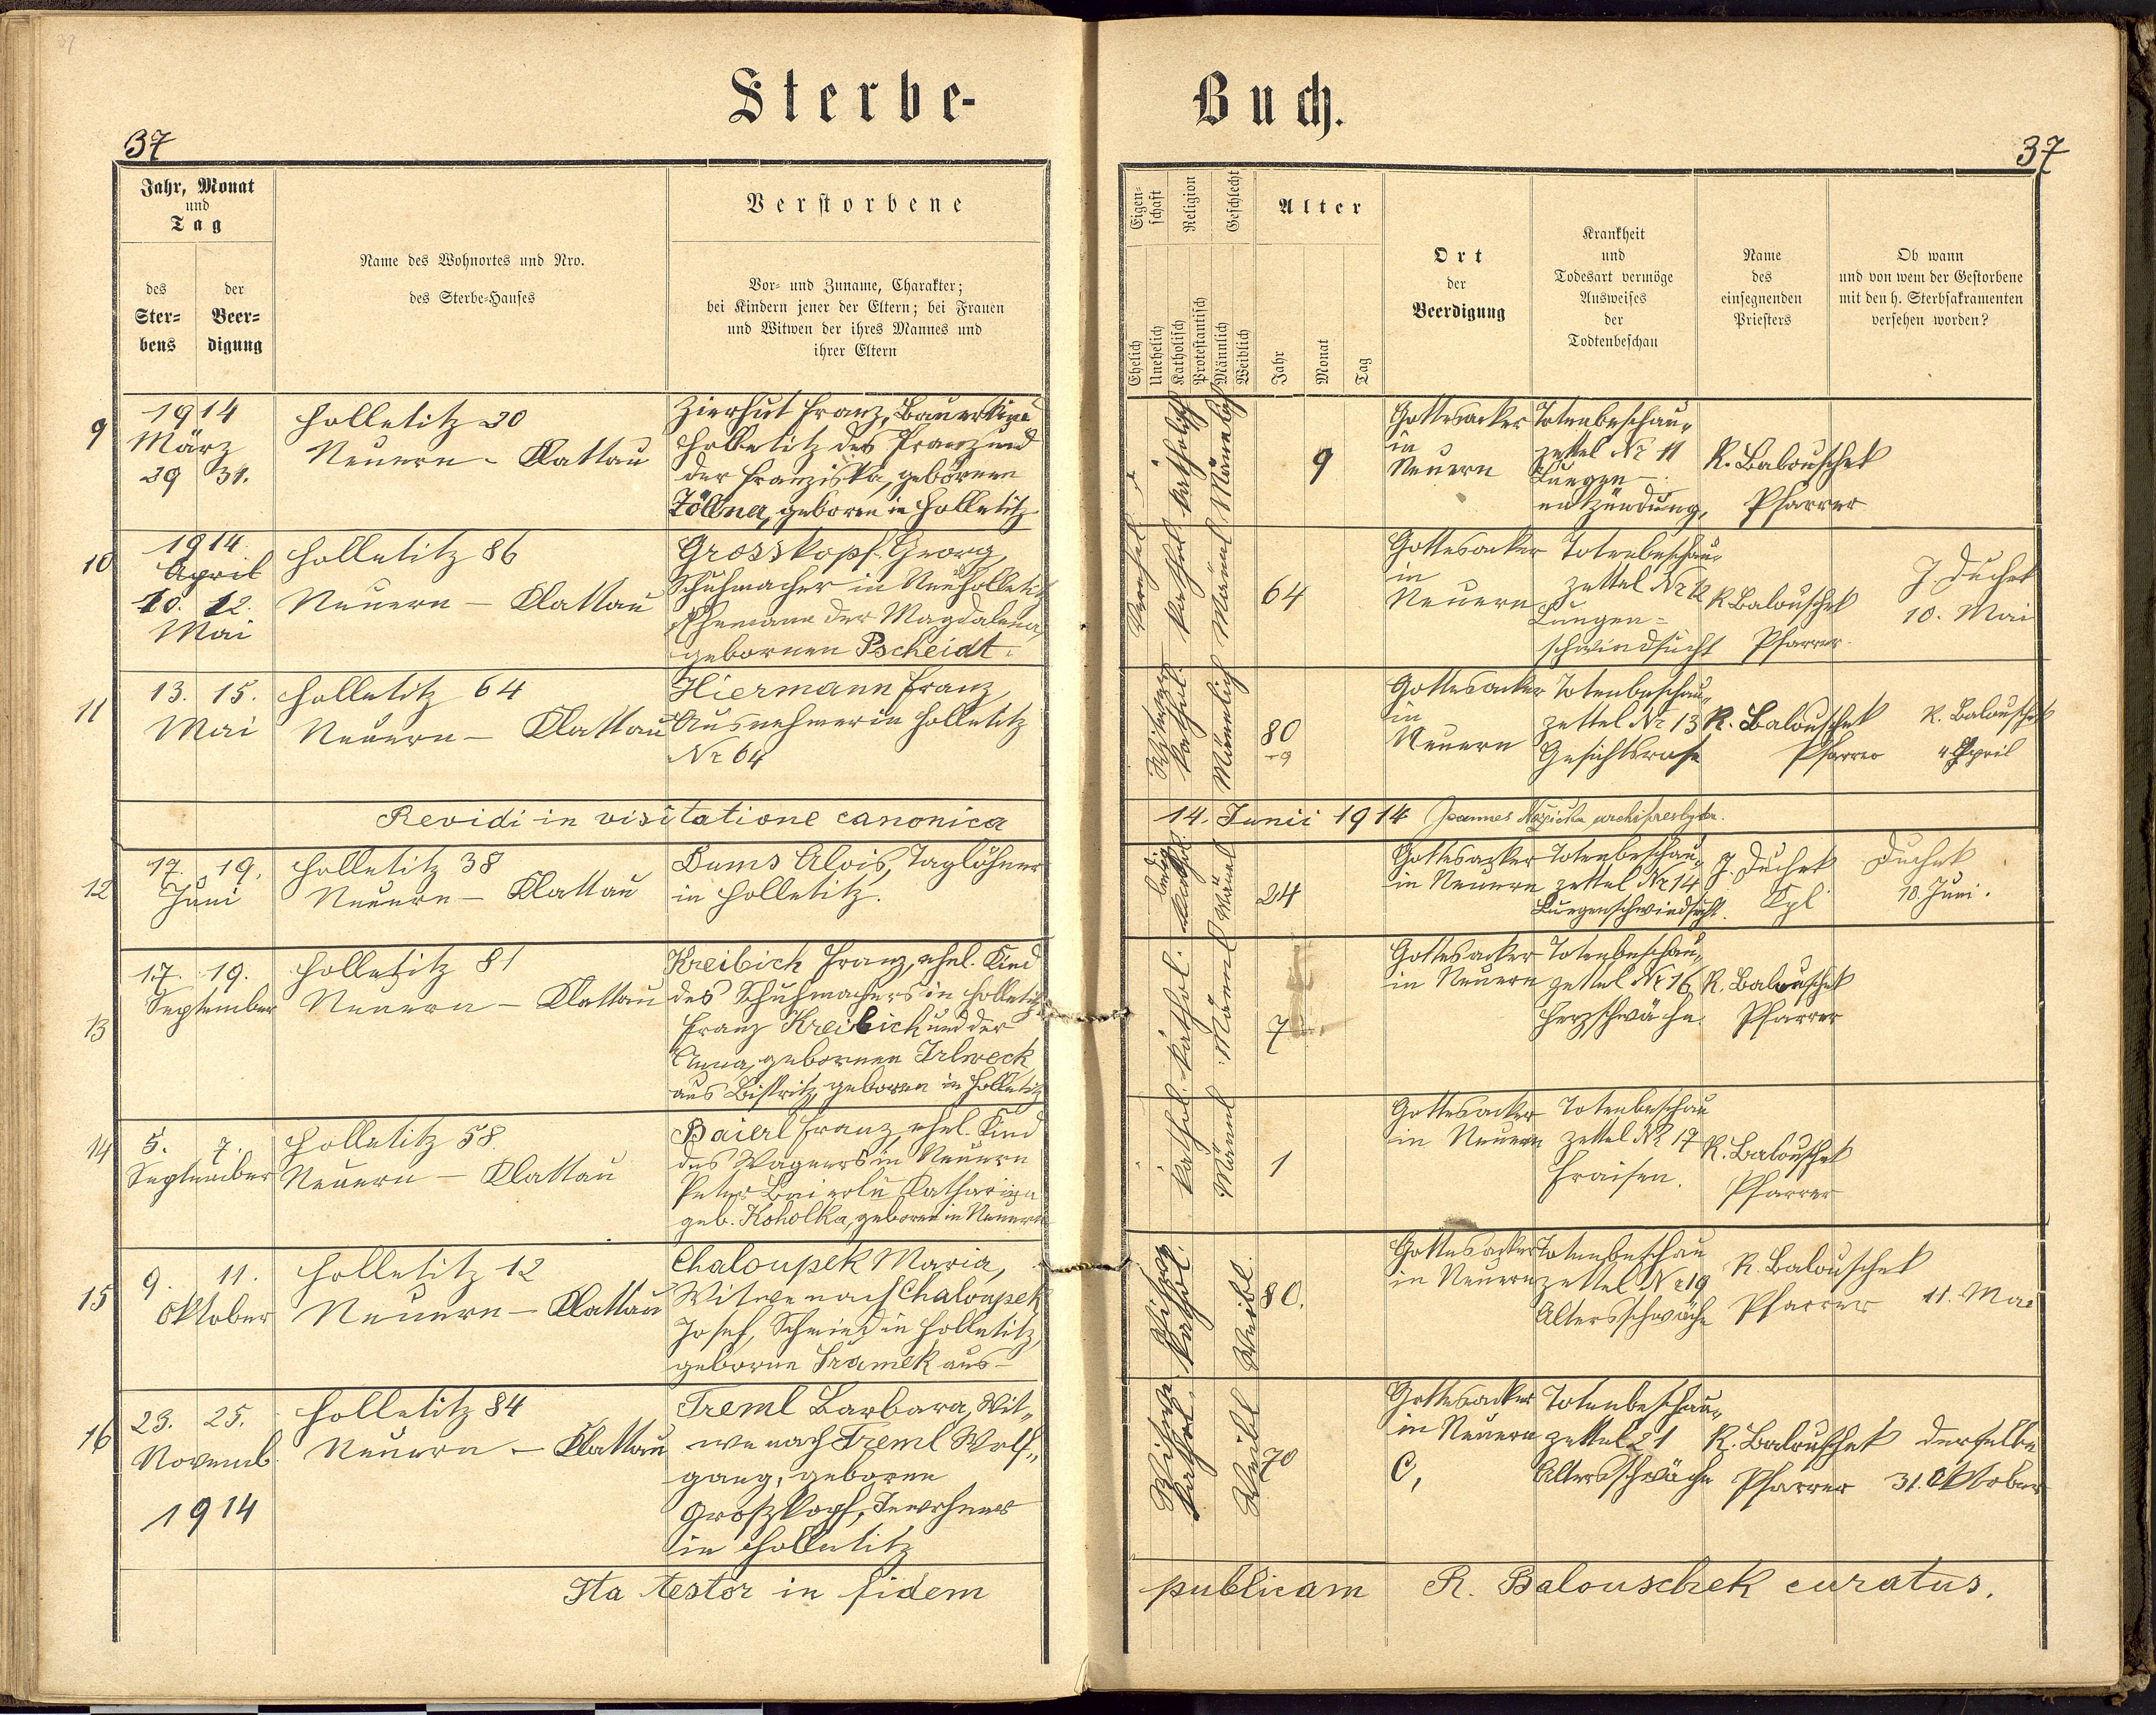 37
Sterbe-
Buch.
37
37
Jahr, Monat
und
Tag
des
Ster=
bens
der
Beer=
digung
Name des Wohnortes und Nro.
des Sterbe=Hauses
Verstorbene
Vor= und Zuname, Charakter;
bei Kindern jener der Eltern; bei Frauen
und Witwen der ihres Mannes und
ihrer Eltern
Eigen=
schaft
Religion
Geschlecht
Alter
Ehelich
Unehelich
Katholisch
Protestantisch
Männlich
Weiblich
Jahr
Monat
Tag
Ort
der
Beerdigung
Krankheit
und
Todesart vermöge
Ausweises
der
Todtenbeschau
Name
des
einsegnenden
Priesters
Ob wann
und von wem der Gestorbene
mit den h. Sterbsakramenten
versehen worden?
9
1914
März
29 31.
Holletitz 20
Neuern - Klattau
Zierhut Franz, Bauerskind
Holletitz des Franz und
der Franziska, gebornen
Zöllner, geboren in Holletitz
katholisch
Männlich
9
Gottesacker
in
Neuern
Totenbeschau-
zettel Nr 11
Lungen-
entzündung,
R. Balouschek
Pfarrer
10
1914
April
10. 12.
Mai
Holletitz 86
Neuern - Klattau
Grosskopf Georg,
Schuhmacher in Neuholletitz
Ehemann der Magdalena,
gebornen Pscheidt.
Verehel.
kathol.
Männl
64
Gottesacker
in
Neuern
Totenbeschau-
zettel Nr 12
Lungen=
schwindsucht
R. Balouschek
Pfarrer.
J. Duchek
10. Mai
11
13. 15.
Mai
Holletitz 64
Neuern - Klattau
Hiermann Franz,
Ausnehmer in Holletitz
Nr 64
Witwer
kathol.
Männlich
80
Gottesacker
in
Neuern
Totenbeschau-
zettel Nr 13
Gesichtsrose
R. Balouschek
Pfarrer
R. Balouschek
4. April
Revidi in visitatione canonica
14. Junii 1914 Joannes archipresbyter.
12
17. 19.
Juni
Holletitz 38
Neuern - Klattau
Dums Alois, Taglöhner
in Holletitz.
ledig
kathol.
Männl
24
Gottesacker
in Neuern
Totenbeschau-
zettel Nr 14
Lungenschwindsucht.
J. Duchek
Kpl
Duchek
10. Juni.
13
17. 19.
September
Holletitz 81
Neuern - Klattau
Kreibich Franz, ehel. Kind
des Schuhmachers in Holletitz
Franz Kreibich und der
Anna, gebornen Irlweck
aus Bistritz, geboren in Holletitz
kathol.
Männl
7
Gottesacker
in Neuern
Totenbeschau-
zettel Nr 16
Herzschwäche.
R. Balouschek
Pfarrer
14
5. 7.
September
Holletitz 58.
Neuern - Klattau
Baierl Franz, ehel. Kind
des Wagners in Neuern
Peter Baierl u Katharina
geb. Koholka, geboren in Neuern
kathol.
Männl
1
Gottesacker
in Neuern
Totenbeschau
zettel Nr 17
Fraisen.
R. Balouschek
Pfarrer
15
9. 11.
Oktober
Holletitz 12
Neuern - Klattau
Chaloupek Maria,
Witwe nach Chaloupek
Josef, Schmied in Holletitz,
geborne Sramek aus-
Witwe
kathol.
Weibl.
80.
Gottesacker
in Neuern
Totenbeschau
zettel Nr 19
Altersschwäche
R. Balouschek
Pfarrer
11. Mai
16
23. 25.
Novemb.
1914
Holletitz 84
Neuern - Klattau
Treml Barbara, Wit-
we nach Treml Wolf-
gang, geboren
Groszkopf, Inwohner
in Holletitz
Witwe
kathol.
Weibl
70
Gottesacker
in Neuern
Totenbeschau-
zettel 21
Altersschwäche
R. Balouschek
Pfarrer
derselbe
31. Oktober
Ita testor in fidem
publicam R. Balouschek curatus.